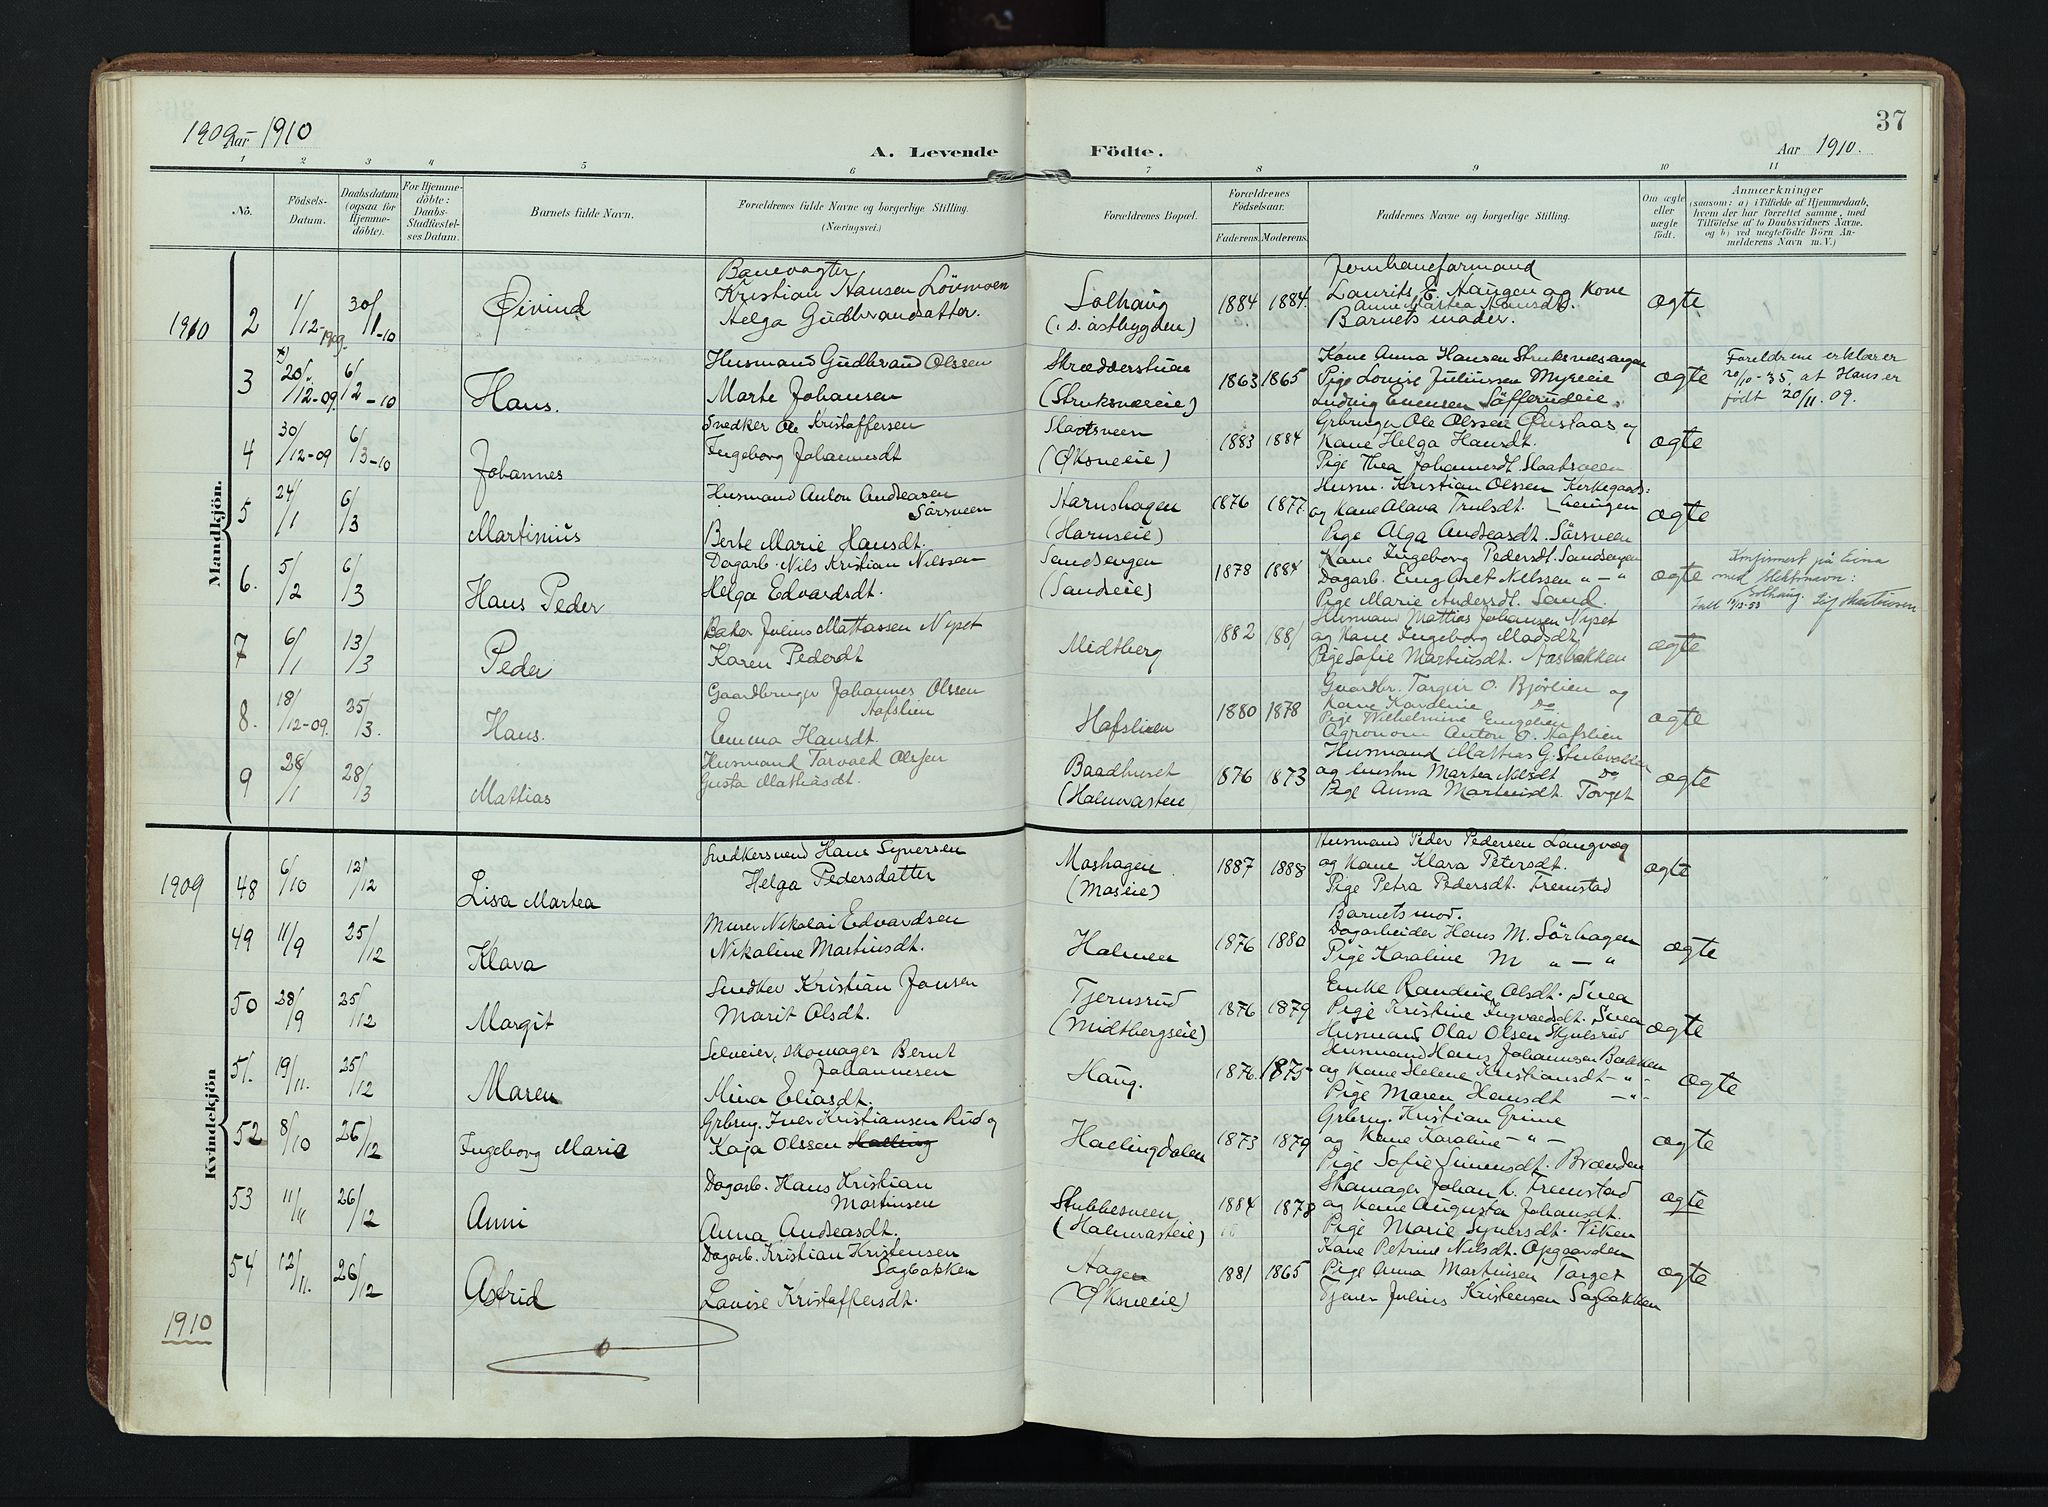 1909 Aar 1910
A. Levende Födte.
37
Aar 1910.
1 2 3 4 5 6 7 8 9 10 11
No.
Födsels-Datum.
Daabsdatum (ogsaa for Hjemmedöbte).
For Hjemmedöbte: Daabs-Stadfæstelses Datum.
Barnets fulde Navn.
Forældrenes fulde Navne og borgerlige Stilling.
(Næringsvei.)
Forældrenes Bopæl.
Forældrenes Födselsaar.
Faderens. Moderens.
Faddernes Navne og borgerlige Stilling.
Om ægte eller uægte födt.
Anmærkninger
(saasom: a) i Tilfælde af Hjemmedaab, hvem der har forrettet samme, med Tilföielse af to Daabsvidners Navne. og b) ved uægtefödte Börn Anmelderens Navn m. V.)
Mandkjön.
1910
2 1/12-1909 30/1-10 Øivind
Banevogter
Kristian Hansen Lövmoen
Helga Gudbrandsdatter.
Solhaug
(i s. astbygden)
1884 1884.
Jernbaneformand
Laurits E. Haugen og Kone
Anne Martea Hansdt.
Barnets moder.
ægte
3 20/12-09. 6/2-10 Hans.
Husmand Gudbrand Olssen
Marte Johansen
Skrædderstuen
(Struksnæseie)
1863 1865
Kone Anna Hansen Struksnæsengen
Pige Louise Juliussen Myreeie
Ludvig Evensen Säfferudeie.
ægte
Foreldrene erklærer
20/10-35, at Hans er
født 20/11.09.
4 30/12-09 6/3-10 Johannes
Snedker Ole Kristaffersen
Ingeborg Johannesdt
Slaatsveen
(Øksneeie)
1883 1884
Grbruger Ole Olssen Øustaas og
Kone Helga Hansdt.
Pige Thea Johannesdt. Slaatsveen
ægte
5 24/1 6/3 Martinius
Husmand Anton Andreasen
Sörsveen
Berte Marie Hansdt.
Harnshagen
(Harnseie)
1876 1877.
Husm. Kristian Olssen Kirkegaards:
og Kone Alava Trulsdt.
Pige Alga Andreasdt. Sörsveen
ægte
6. 5/2 6/3 Hans Peder
Dagarb. Nils Kristian Nilssen
Helga Edvardsdt.
Sandsengen
(Sandseie)
1878 1884
Kone Ingeborg Pedersdt. Sandsengen
Dagarb. Engbret Nilssen " - "
Pige Marie Andersdt. Sand.
ægte
Konfirmert på Eina
med slektsnavn:
Solhaug.
7 6/1 13/3 Peder
Baker Julius Mattassen Nypet
Karen Pedersdt
Midtberg
1882 1881
Husmand Mattias Johansen Nypet
og Kone Ingeborg Madsdt.
Pige Sofie Martinsdt. Aasbakken
ægte
8. 18/12-09. 25/3. Hans.
Gaardbruger Johannes Olssen
Hafslien
Emma Hansdt.
Hafslien
1880 1878
Gaardbr. Targeir O. Bjørlien og
Kone Karoline Do
Pige Wilhelmine Engelien
Agronom Anton O. Hafslien
ægte
9 28/1 28/3 Mattias
Husmand Tarvald Olssen
Gusta Mathiasdt.
Baadhuset
(Halmrasteie)
1876 1873
Husmand Mattias G. Stubvolden
og hustru Martea Nilsdt Do
Pige Anna Martinsdt. Torget
ægte
Kvindekjön
1909
48 6/10 12/12 Lisa Martea
Snedkersvend Hans Syversen
Helga Pedersdatter
Moshagen
(Moseie)
1887 1888
Husmand Peder Pedersen Langvæg
og Kone Klara Petersdt.
Pige Petra Pedersdt. Fremstad
ægte
49 11/9 25/12 Klara
Murer Nikolai Edvardsen
Nikoline Martinsdt.
Halmen
1876 1880
Barnets mod.
Dagarbeider Hans M. Sörhagen
Pige Karoline M " - "
ægte
50 28/9 25/12 Margit
Snedker Kristian Jansen
Marit Olsdt.
Tjernsrud
(Midtbergseie)
1876 1879
Enke Randine Olsdt. Snea
Pige Kristine Ingvaldsdt. Snea
Husmand Olav Olsen Skjulsrud
ægte
51. 19/11. 25/12 Maren
Selveier, skomager Bernt
Johannesen
Mina Eliasdt.
Haug.
1876 1875
Husmand Hans Johannesen Bakken
og Kone Helene Kristiansdt - " -
Pige Maren Hansdt - " -
ægte
52 8/10 26/12 Ingeborg Marie
Grbrug. Iver Kristiansen Rud og
Kaja Olssen Halling
Hallingdalen
1873 1879
Grbrug. Kristian Grime
og Kone Karoline - " -
Pige Sofie Simensdt. Brænden
ægte
53 11/11 26/12 Anni
Dagarb. Hans Kristian
Martinsen
Anna Andreasdt.
Stubbesveen
(Halmrasteie)
1884 1878
Skomager Johan K. Fremstad
og Kone Augusta Johansdt.
Pige Marie Syversdt. Viken
ægte
54 12/11. 26/12 Astrid
Dagarb. Kristian Kristensen
Sagbakken
Lovise Kristaffersdt.
Hagen
(Øksneeie)
1881 1865
Kone Petrine Nilsdt. Opgaarden
Pige Anna Martinsen Torget
Tjener Julius Kristensen Sagbakken
ægte
1910